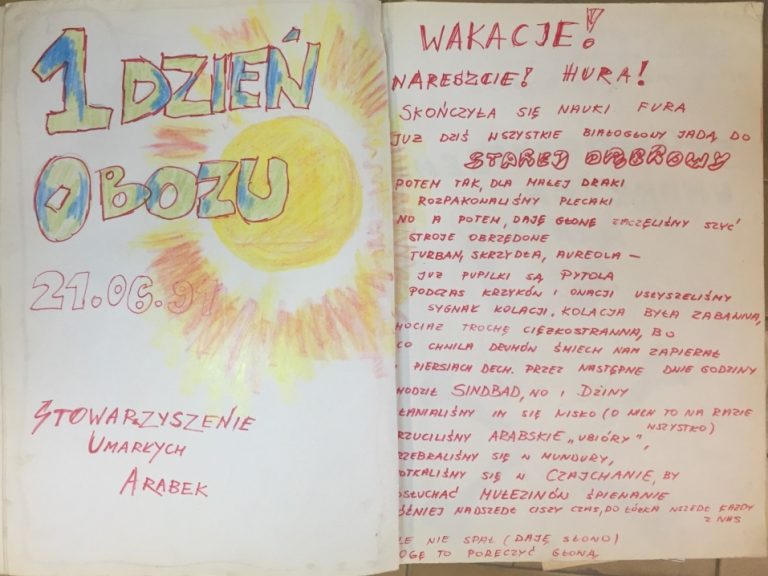 1 DZIEŃ
OBOZU
21.06.91
STOWARZYSZENIE
UMARŁYCH
ARABEK
WAKACJE!
NARESZCIE! HURA!
SKOŃCZYŁA SIĘ NAUKI FURA
JUŻ DZIŚ WSZYSTKIE BIAŁOGŁOWY JADĄ DO
STAREJ DĄBROWY
POTEM TAK, DLA MAŁEJ DRAKI
ROZPAKOWALIŚMY PLECAKI
NO A POTEM, DAJĘ GŁOWĘ ZACZĘLIŚMY SZYĆ
STROJE OBRZĘDOWE
TURBAN, SKRZYDŁA, AUREOLA —
JUŻ PUPILKI SĄ PYTOLA
PODCZAS KRZYKÓW I OWACJI USŁYSZELIŚMY
SYGNAŁ KOLACJI. KOLACJA BYŁA ZABAWNA,
HOCIAŻ TROCHĘ CIĘŻKOSTRAWNA, BO
CO CHWILA DRUHÓW ŚMIECH NAM ZAPIERAŁ
PIERSIACH DECH. PRZEZ NASTĘPNE DWIE GODZINY
HODZIŁ SINDBAD, NO I DŻINY
ŁANIALIŚMY IM SIĘ NISKO (O NICH TO NA RAZIE
WSZYSTKO)
RZUCILIŚMY ARABSKIE „UBIORY",
RZEBRALIŚMY SIĘ W MUNDURY,
OTKALIŚMY SIĘ W CZAJCHANIE, BY
OSŁUCHAĆ MUŁEZINÓW ŚPIEWANIE
ŹNIEJ NADSZEDŁ CISZY CZAS, DO ŁÓŻKA WSZEDŁ KAŻDY
Z NAS
LE NIE SPAŁ (DAJĘ SŁOWO)
OGĘ TO PORĘCZYĆ GŁOWĄ